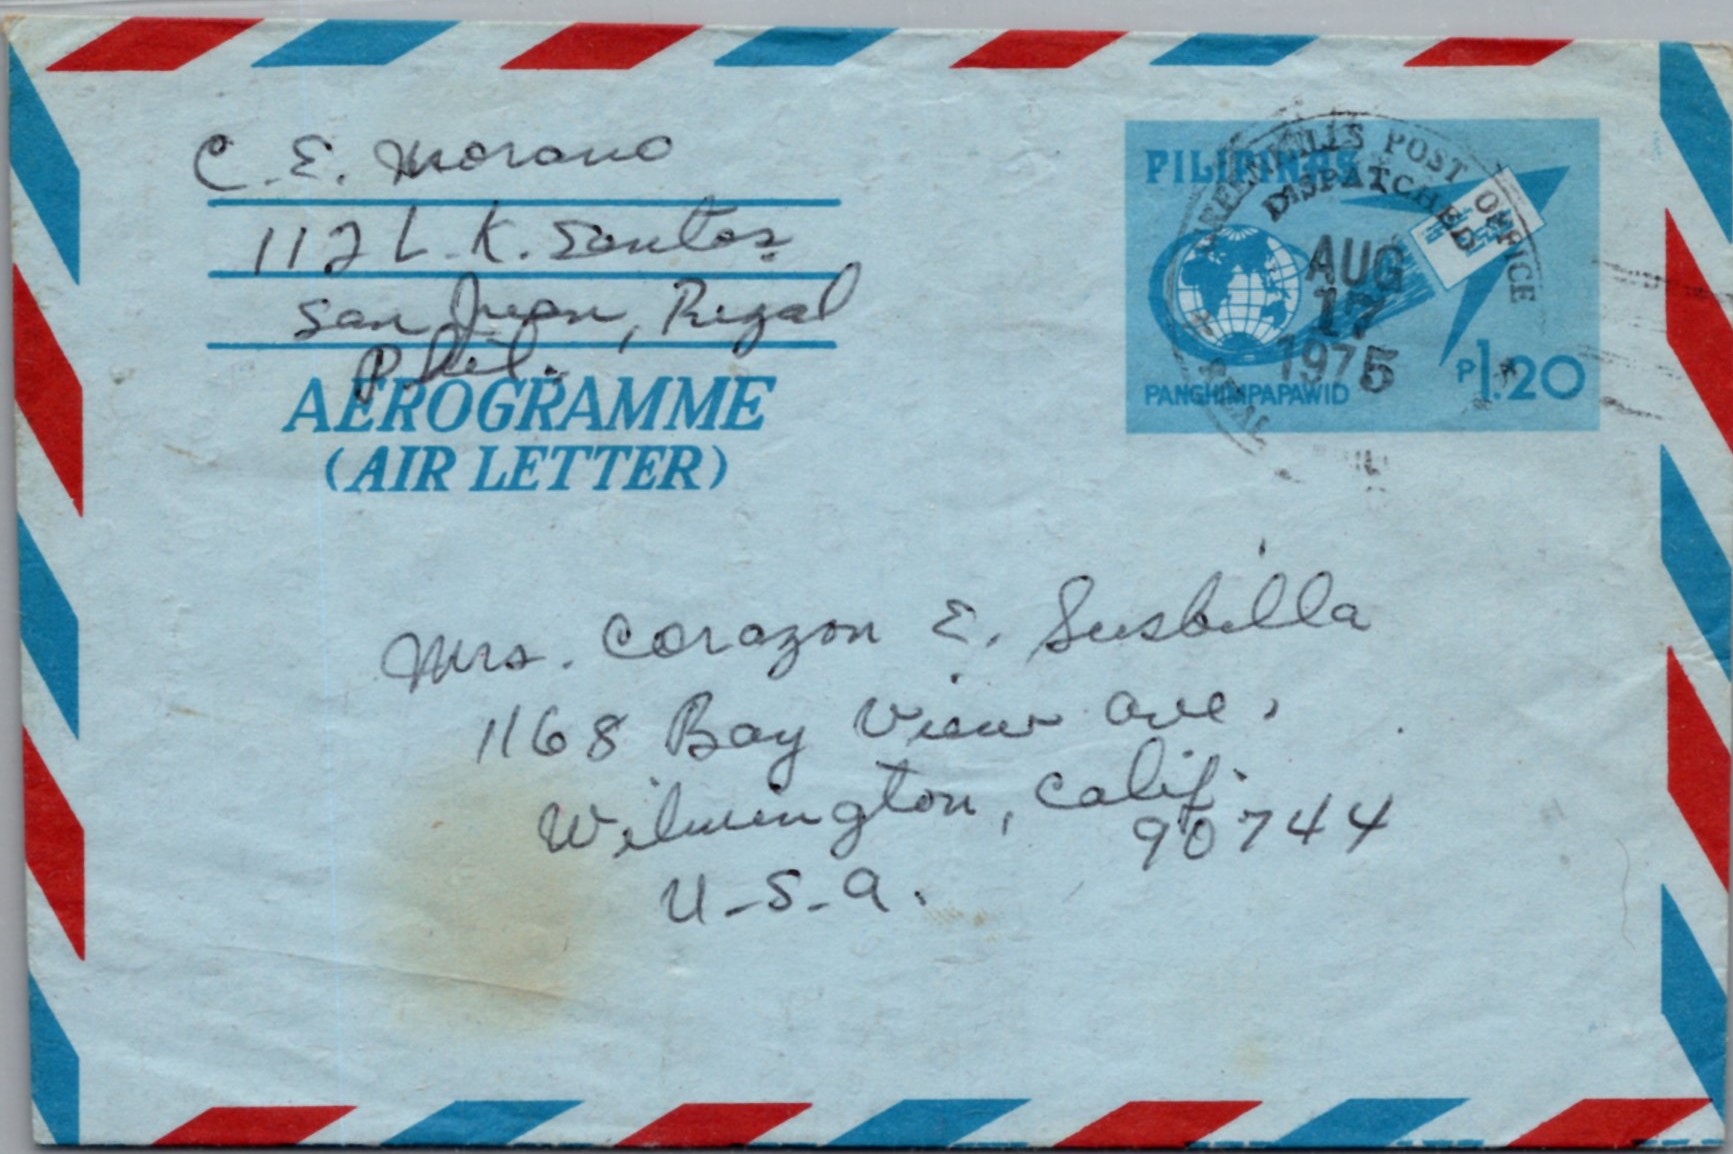 C. E. Morano
112 L. K. Santos
San Juan, Rizal
Phil.
AEROGRAMME
(AIR LETTER)
PILIPINAS
GREENHILLS POST OFFICE
DISPATCHED
AUG
17
1975
RIZAL
PANGHIMPAPAWID
P1.20
Mrs. Corazon E. Susbilla
1168 Bay View Ave.
Wilmington, Calif.
90744
U-S-A.